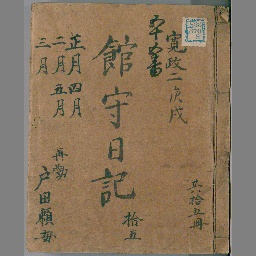 寛政二庚戌
共八拾五冊
館守日記
拾五
正月
二月
三月
四月
五月
再勤
戸田頼母